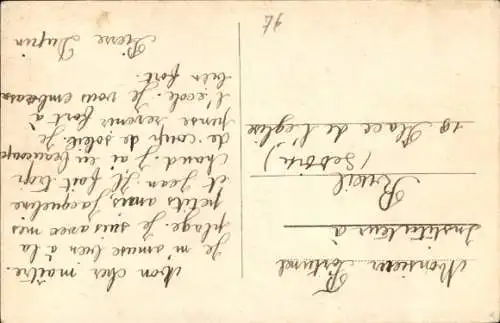 Mon cher maître.
Je m'amuse bien à la
plage. Je suis avec mes
petits amis, Jacqueline
et Jean. Il fait trop
chaud. J'ai eu beaucoup
de coup de soleil. Je
pense revenir fort à
l'école. Je vous embrasse
bien fort.
Pierre Dupin
Monsieur
Instituteur à
Rueil
19 Place de l'eglise